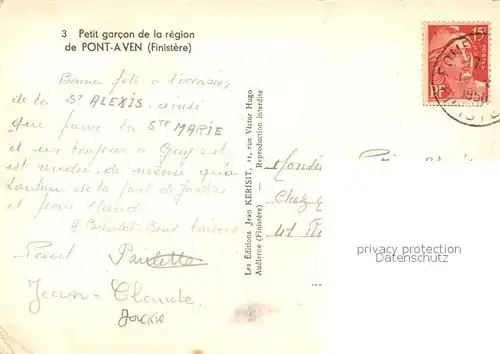 3 Petit garçon de la région
de PONT-AVEN (Finistère)
Bonne fête à l'occasion
de la St ALEXIS. ainsi
que pour la Ste MARIE
et un bonjour à Guy
et
rendu, de même qu'à
de la part de Jackie
et Jean Claude
A Bientôt Bons baisers
Paul Paulette
Jean-Claude
Jackie
Les Editions Jean KERISIT, 11, rue Victor Hugo
Audierne (Finistère) — Reproduction Interdite
15F
POSTES
RF
1950
Chez
41
privacy protection
Datenschutz